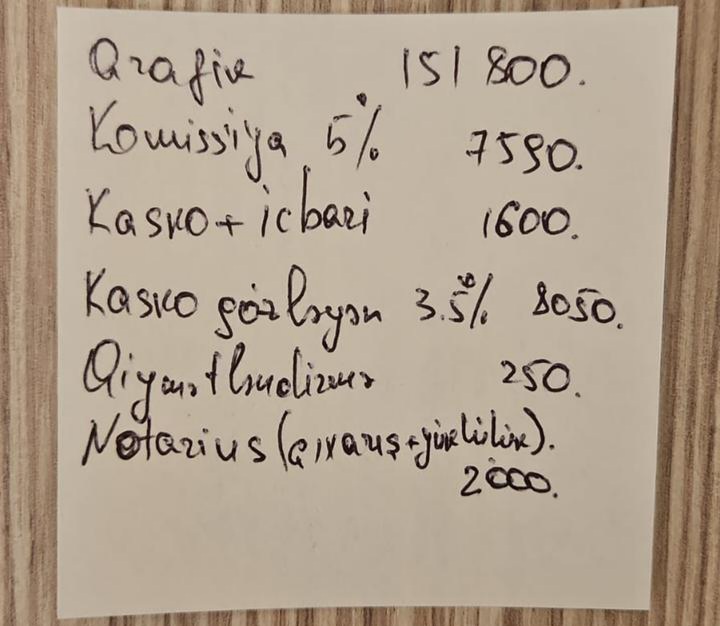 Qrafik 151 800.
Komissiya 5% 7590.
Kasko + icbari 1600.
Kasko gözləyən 3.5% 8050.
Qiymətləndirmə 250.
Notarius (çıxarış + yüklülük).
2000.